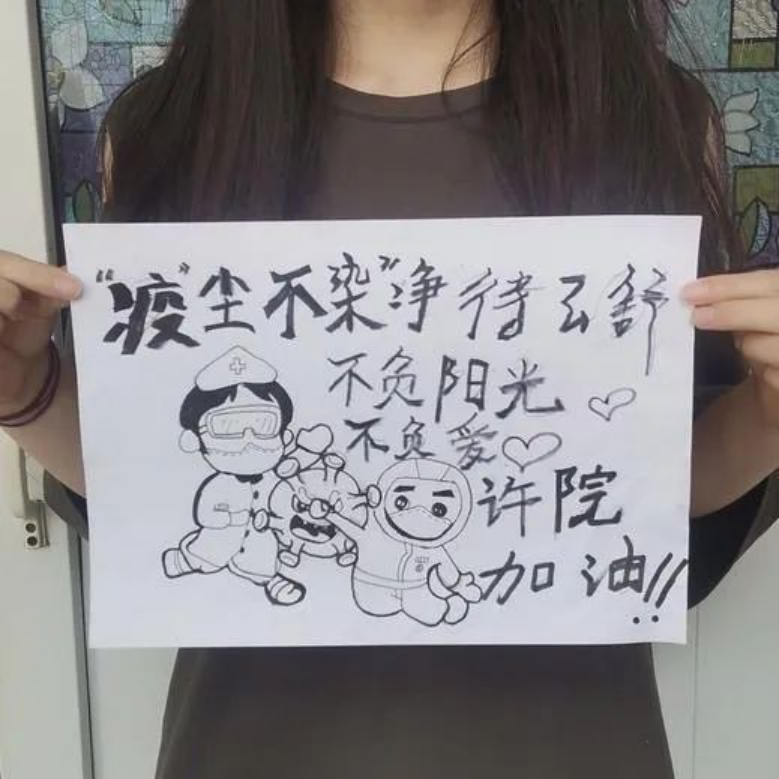 “疫”尘不染”净待云舒
不负阳光
不负爱
许院
加油!!